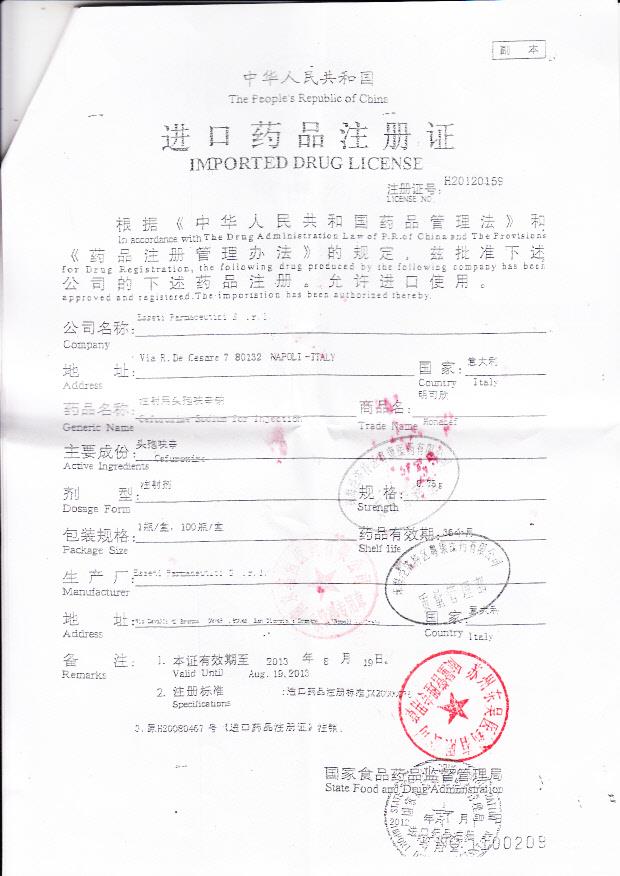 副 本
中华人民共和国
The People's Republic of China
进口药品注册证
IMPORTED DRUG LICENSE
注册证号: H20120159
LICENSE NO.
根据《中华人民共和国药品管理法》和
In accordance with The Drug Administration Law of P.R.of China and The Provisions
《药品注册管理办法》的规定，兹批准下述
for Drug Registration, the following drug produced by the following company has been
公司的下述药品注册。允许进口使用。
approved and registered.The importation has been authorized thereby.
公司名称: Esseti Farmaceutici S.r.l.
Company
地 址: Via R.De Cesare 7 80132 NAPOLI -ITALY 国 家: 意大利
Address Country Italy
药品名称: 注射用头孢呋辛钠 商品名: 明可欣
Generic Name Cefuroxime Sodium for Injection Trade Name Monacef
主要成份: 头孢呋辛
Active Ingredients Cefuroxime
剂 型: 注射剂 规 格: 0.75g
Dosage Form Strength
包装规格: 1瓶/盒, 100瓶/盒 药品有效期: 36个月
Package Size Shelf life
生 产 厂: Esseti Farmaceutici S.r.l.
Manufacturer
地 址: 国 家: 意大利
Address Country Italy
备 注: 1. 本证有效期至 2013 年 8 月 19日。
Remarks Valid Until Aug.19,2013
2. 注册标准 :进口药品注册标准
Specifications
3.原H20080467号《进口药品注册证》注销.
苏州东吴医药有限公司
国家食品药品监督管理局
State Food and Drug Administration
年 月 日
NO.